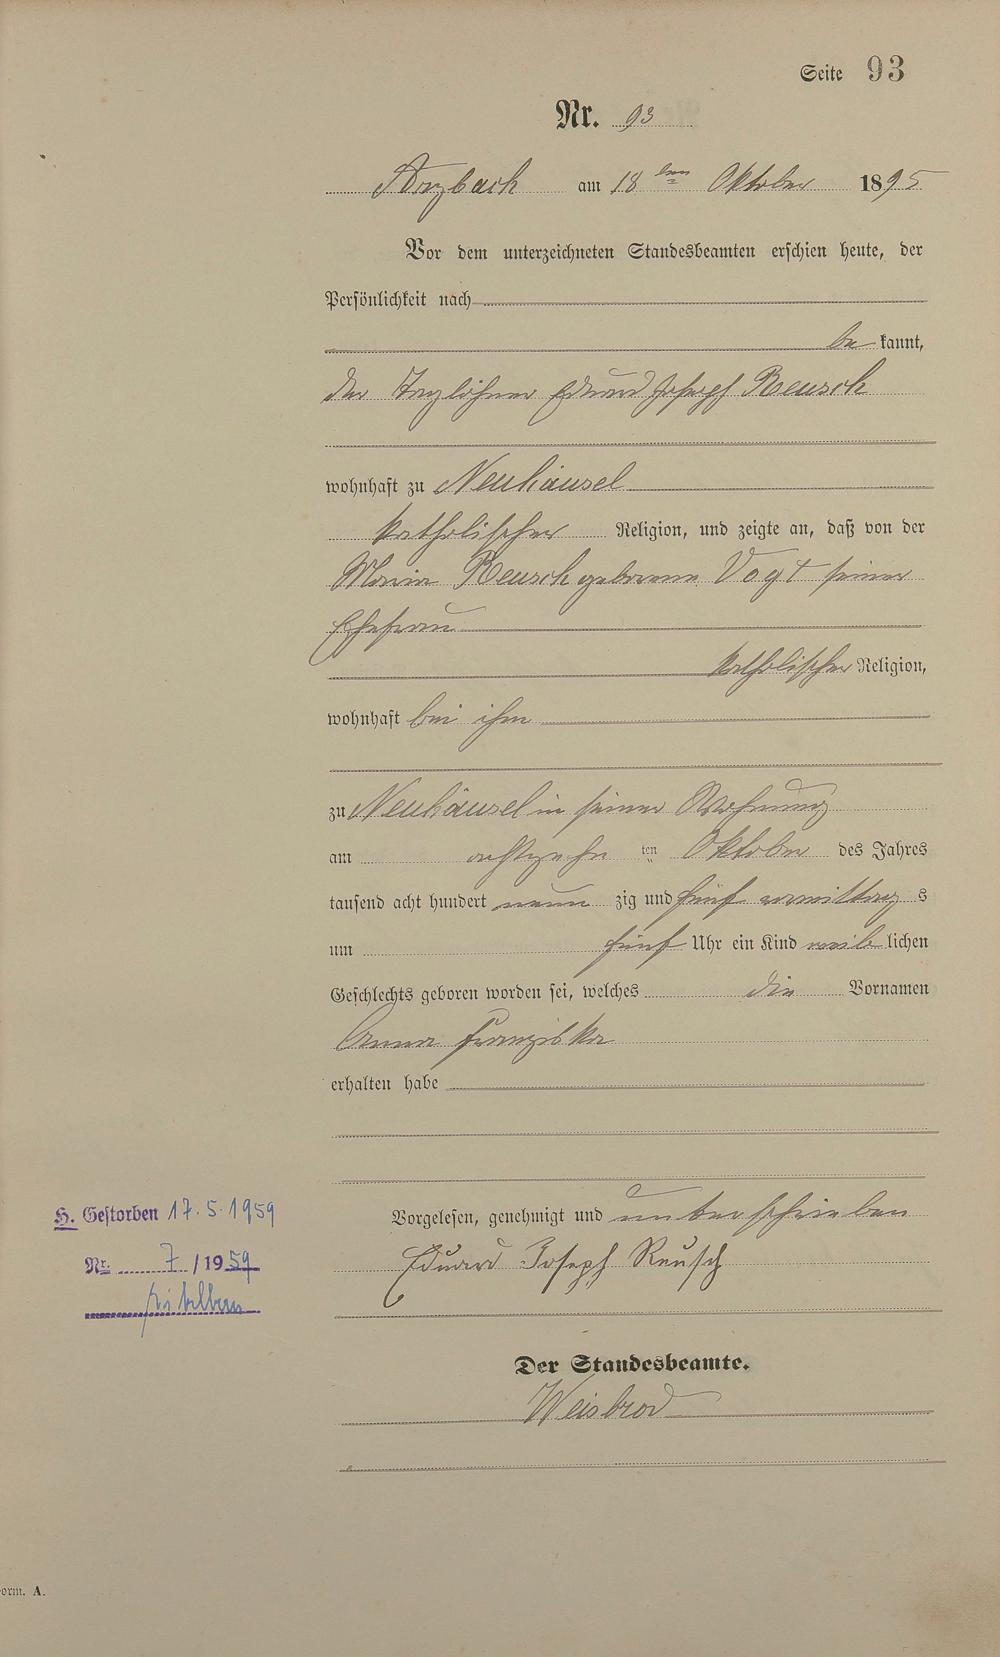 Seite 93
Nr. 93
Arzbach am 18ten Oktober 1895
Vor dem unterzeichneten Standesbeamten erschien heute, der
Persönlichkeit nach
be kannt,
der Taglöhner Eduard Joseph Reusch
wohnhaft zu Neuhäusel
katholischer Religion, und zeigte an, daß von der
Maria Reusch geborene Vogt seiner
Ehefrau
katholischer Religion,
wohnhaft bei ihm
zu Neuhäusel in seiner Wohnung
am achtzehn ten Oktober des Jahres
tausend acht hundert neun zig und fünf vormittag s
um fünf Uhr ein Kind weib lichen
Geschlechts geboren worden sei, welches die Vornamen
Anna Franziska
erhalten habe
H. Gestorben 17.5.1959
Nr. 7/1959
Vorgelesen, genehmigt und unterschrieben
Eduard Joseph Reusch
Der Standesbeamte.
Weisbrod
orm. A.